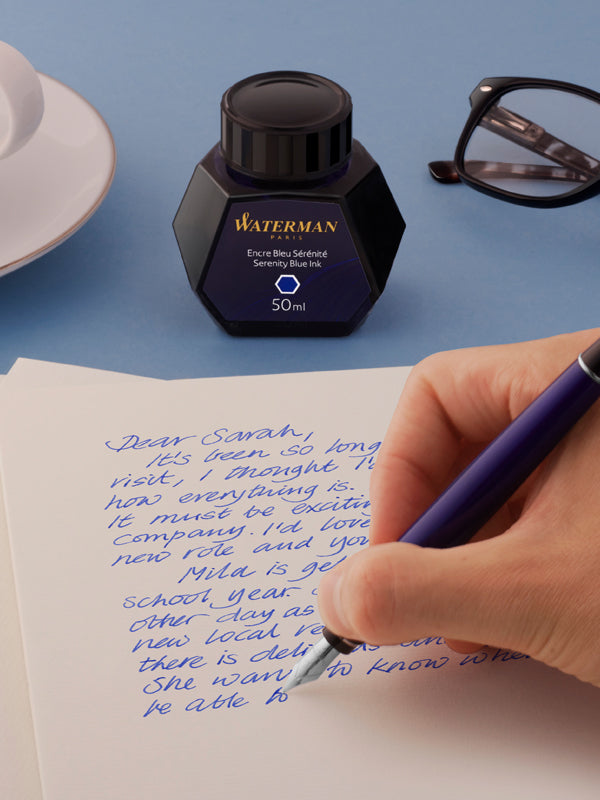 WATERMAN
PARIS
Encre Bleu Sérénité
Serenity Blue Ink
50ml
Dear Sarah,
It's been so long
visit, I thought I'd
how everything is.
It must be exciting
company. I'd love
new role and you
Mila is get
school year.
other day as
new local re
there is deli as
She wan to know when
be able to